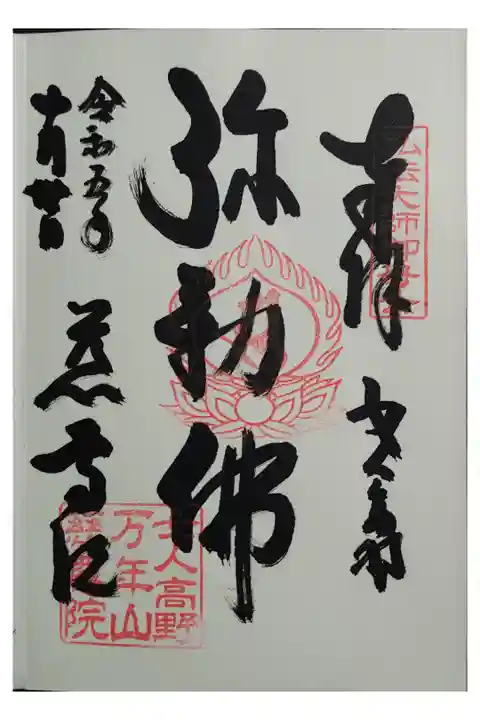 奉拝
弘法大師御母公
弥勒佛
令和五年
十月廿日
慈尊院
女人高野
万年山
慈尊院